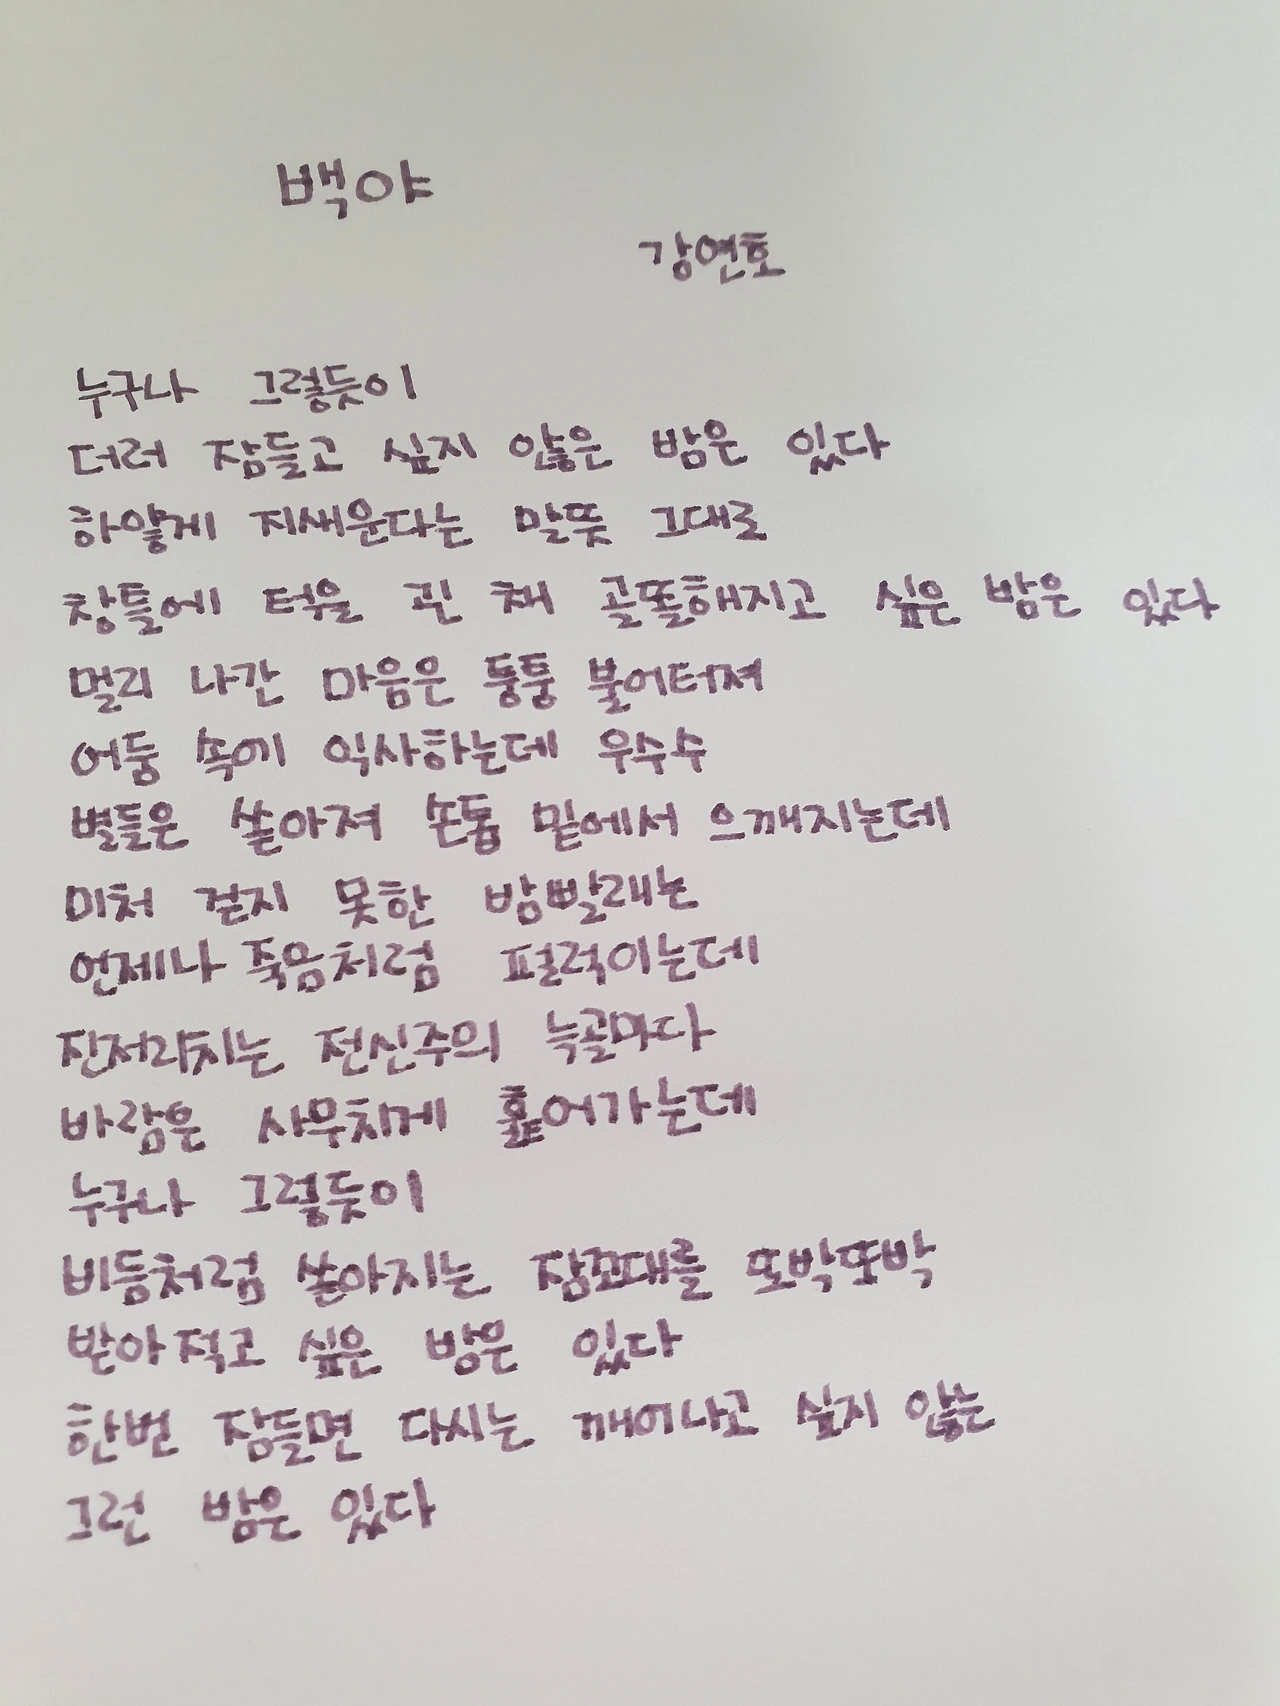 백야
강연호
누구나 그렇듯이
더러 잠들고 싶지 않은 밤은 있다
하얗게 지새운다는 말뜻 그대로
창틀에 턱을 괸 채 골똘해지고 싶은 밤은 있다
멀리 나간 마음은 퉁퉁 불어터져
어둠 속에 익사하는데 우수수
별들은 쏟아져 손톱 밑에서 으깨지는데
미처 걷지 못한 밤빨래는
언제나 죽음처럼 펄럭이는데
진저리치는 전신주의 늑골마다
바람은 사무치게 훑어가는데
누구나 그렇듯이
비듬처럼 쏟아지는 잠꼬대를 또박또박
받아적고 싶은 밤은 있다
한번 잠들면 다시는 깨어나고 싶지 않은
그런 밤은 있다